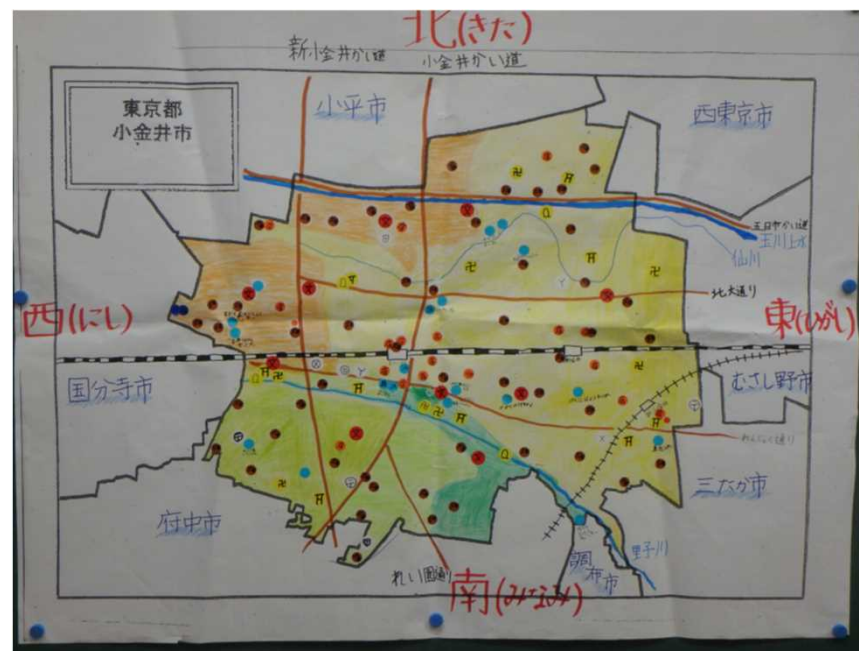 北(きた)
新小金井かい道
小金井かい道
東京都
小金井市
小平市
西東京市
五日市かい道
玉川上水
仙川
北大通り
西(にし)
東(ひがし)
国分寺市
むさし野市
れんじゃく通り
三たか市
府中市
野川
調布市
れい園通り
南(みなみ)